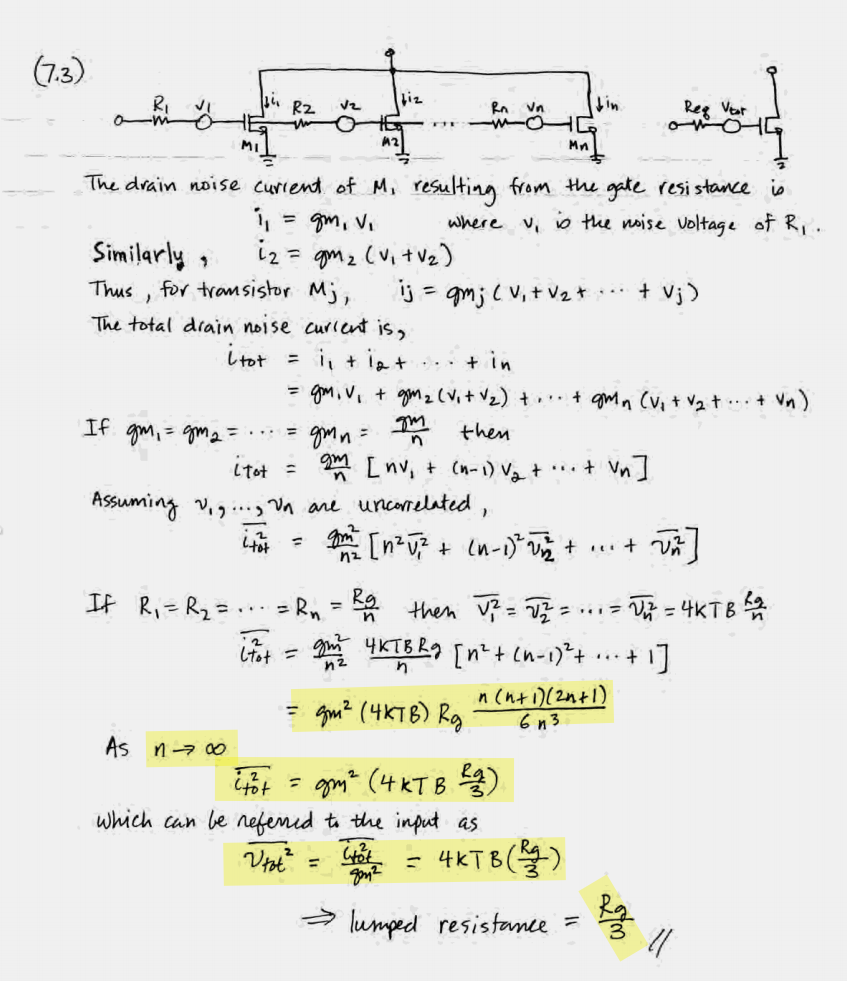 (7.3)
R1 v1 i1 R2 v2 i2 ... Rn vn in Req Vtot
M1 M2 Mn
The drain noise current of M1 resulting from the gate resistance is
i1 = gm1 v1 where v1 is the noise voltage of R1.
Similarly, i2 = gm2 (v1+v2)
Thus, for transistor Mj, ij = gmj (v1+v2+ ... + vj)
The total drain noise current is,
itot = i1 + i2 + .... + in
= gm1v1 + gm2(v1+v2) + ... + gmn (v1+v2+...+vn)
If gm1 = gm2 = ... = gmn = gm/n then
itot = gm/n [nv1 + (n-1)v2 + ... + vn]
Assuming v1, ..., vn are uncorrelated,
i²tot = gm²/n² [n²v1² + (n-1)²v2² + ... + vn²]
If R1 = R2 = ... = Rn = Rg/n then v1² = v2² = ... = vn² = 4KTB Rg/n
i²tot = gm²/n² 4KTBRg/n [n² + (n-1)² + ... + 1]
= gm² (4KTB) Rg n(n+1)(2n+1)/6n³
As n → ∞
i²tot = gm² (4KTB Rg/3)
which can be referred to the input as
vtot² = i²tot/gm² = 4KTB(Rg/3)
⇒ lumped resistance = Rg/3 //